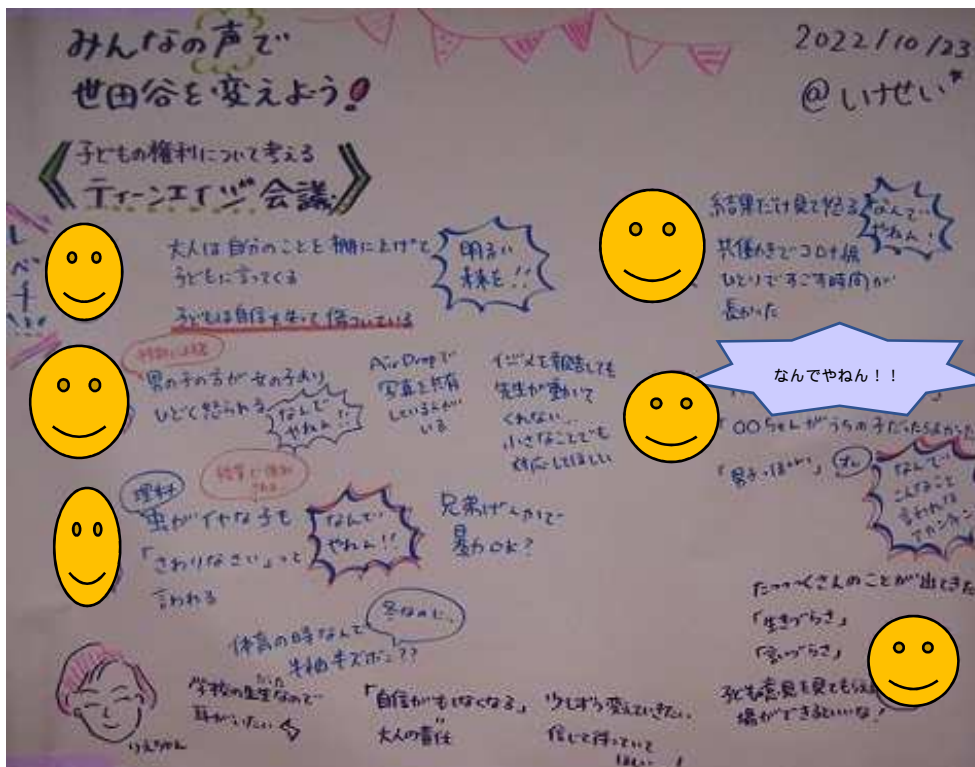 みんなの声で
世田谷を変えよう!
2022/10/23
@いけせい
子どもの権利について考える
ティーンエイジ会議
大人は自分のことを棚に上げて
子どもに言ってくる
子どもは自信を失って傷ついている
明るい
未来を!!
結果だけ見て怒る
なんで
やねん!
共働きでコロナ禍
ひとりですごす時間が
長かった
男の子の方が女の子より
ひどく怒られる
なんで
やねん!!
AirDropで
写真を共有
している人が
いる
イジメを報告しても
先生が動いて
くれない…
小さなことでも
対応してほしい
なんでやねん!!
「〇〇ちゃんがうちの子だったらよかった
なんで
こんなこと
言われな
アカンネン
理科
虫がイヤな子も
「さわりなさい」って
言われる
なんで
やねん!!
兄弟げんかで
暴力OK?
冬なのに、
体育の時なんで
半袖半ズボン??
たっっくさんのことが出てきた
「生きづらさ」
「言いづらさ」
子ども意見を見てもらえる
場ができるといいな!
学校の先生なので
耳がいたい
りえちゃん
「自信がもてなくなる」
大人の責任
少しずつ変えていきたい
信じて待っていて
ほしい!